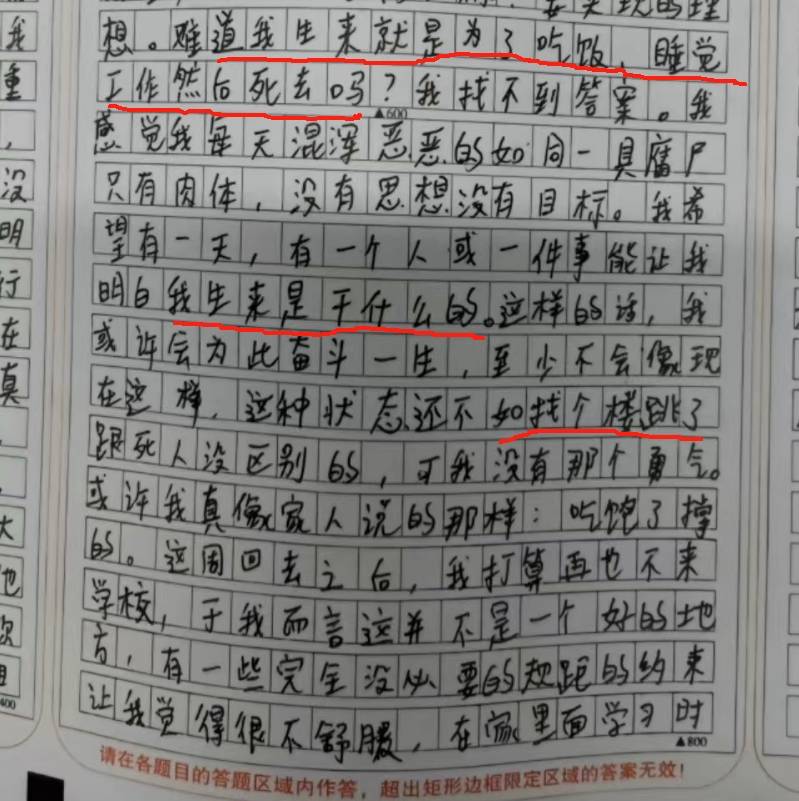 要实现的理
想。难道我生来就是为了吃饭、睡觉
工作然后死去吗？我找不到答案。我
▲600
感觉我每天混浑恶恶的如同一具腐尸
只有肉体，没有思想没有目标。我希
望有一天，有一个人或一件事能让我
明白我生来是干什么的。这样的话，我
或许会为此奋斗一生，至少不会像现
在这样，这种状态还不如找个楼跳了
跟死人没区别的，可我没有那个勇气。
或许我真像家人说的那样：吃饱了撑
的。这周回去之后，我打算再也不来
学校，于我而言这并不是一个好的地
方，有一些完全没必要的规距的约束
让我觉得很不舒服，在家里面学习时
▲800
请在各题目的答题区域内作答，超出矩形边框限定区域的答案无效！
我
重
，
没
明
行
在
真
大
也
400